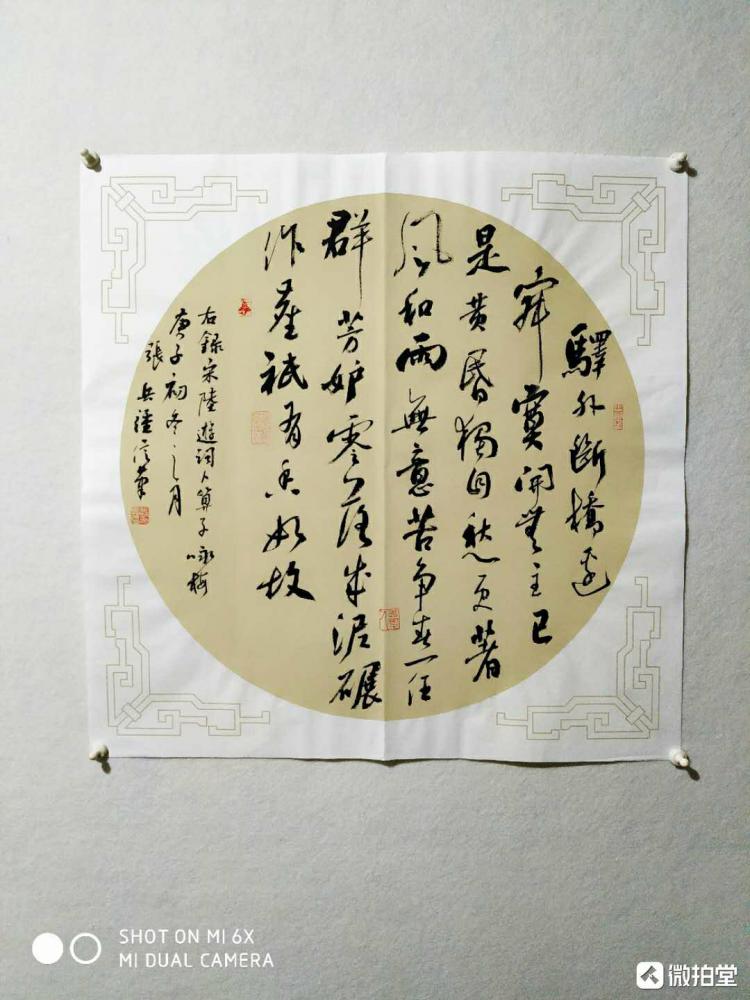 驛外斷橋邊
寂寞開無主已
是黄昏獨自愁更著
風和雨無意苦争春一任
群芳妒零落成泥碾
作塵祇有香如故
右錄宋陸遊詞卜算子咏梅
庚子初冬之月
張兵疆信筆
SHOT ON MI 6X
MI DUAL CAMERA
微拍堂